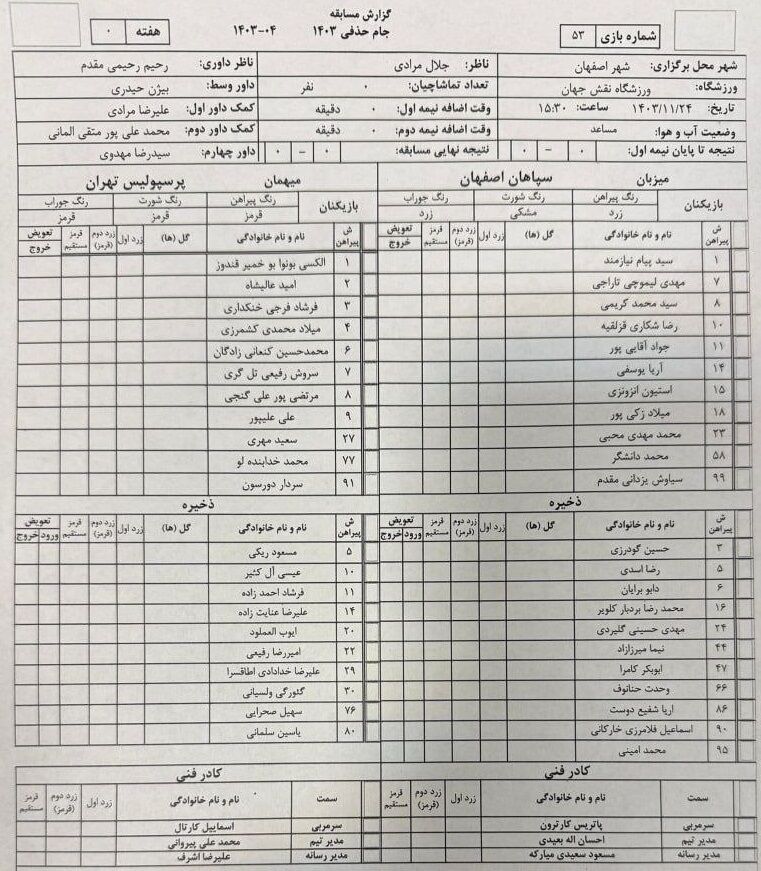 گزارش مسابقه
جام حذفی ۱۴۰۳
۱۴۰۳-۰۴
هفته ۰
شماره بازی ۵۳
شهر محل برگزاری: شهر اصفهان ناظر: جلال مرادی ناظر داوری: رحیم رحیمی مقدم
ورزشگاه: ورزشگاه نقش جهان تعداد تماشاچیان: ۰ نفر داور وسط: بیژن حیدری
تاریخ: ۱۴۰۳/۱۱/۲۴ ساعت: ۱۵:۳۰ وقت اضافه نیمه اول: ۰ دقیقه کمک داور اول: علیرضا مرادی
وضعیت آب و هوا: مساعد وقت اضافه نیمه دوم: ۰ دقیقه کمک داور دوم: محمد علی پور متقی المانی
نتیجه تا پایان نیمه اول: ۰ - ۰ نتیجه نهایی مسابقه: ۰ - ۰ داور چهارم: سیدرضا مهدوی
میزبان سپاهان اصفهان
بازیکنان رنگ پیراهن رنگ شورت رنگ جوراب
زرد مشکی زرد
ش پیراهن نام و نام خانوادگی گل (ها) زرد اول زرد دوم (قرمز) قرمز مستقیم تعویض خروج
۱ سید پیام نیازمند
۷ مهدی لیموچی تاراجی
۸ سید محمد کریمی
۱۰ رضا شکاری قزلقیه
۱۱ جواد آقایی پور
۱۴ آریا یوسفی
۱۵ استیون انزونزی
۱۸ میلاد زکی پور
۲۳ محمد مهدی محبی
۵۸ محمد دانشگر
۹۹ سیاوش یزدانی مقدم
ذخیره
ش پیراهن نام و نام خانوادگی گل (ها) زرد اول زرد دوم (قرمز) قرمز مستقیم تعویض ورود خروج
۳ حسین گودرزی
۵ رضا اسدی
۶ دابو برایان
۱۶ محمد رضا بردبار کلویر
۲۴ مهدی حسینی گلیردی
۴۴ نیما میرزازاد
۴۷ ابوبکر کامرا
۶۶ وحدت حنانوف
۸۶ اریا شفیع دوست
۹۰ اسماعیل فلامرزی خارکانی
۹۵ محمد امینی
کادر فنی
سمت نام و نام خانوادگی زرد اول زرد دوم (قرمز) قرمز مستقیم
سرمربی پاتریس کارترون
مدیر تیم احسان اله بعیدی
مدیر رسانه مسعود سعیدی مبارکه
میهمان پرسپولیس تهران
بازیکنان رنگ پیراهن رنگ شورت رنگ جوراب
قرمز قرمز قرمز
ش پیراهن نام و نام خانوادگی گل (ها) زرد اول زرد دوم (قرمز) قرمز مستقیم تعویض خروج
۱ الکسی بونوا بو خمیر قندوز
۲ امید عالیشاه
۳ فرشاد فرجی خنکداری
۴ میلاد محمدی کشمرزی
۶ محمدحسین کنعانی زادگان
۷ سروش رفیعی تل گری
۸ مرتضی پور علی گنجی
۹ علی علیپور
۲۷ سعید مهری
۷۷ محمد خدابنده لو
۹۱ سردار دورسون
ذخیره
ش پیراهن نام و نام خانوادگی گل (ها) زرد اول زرد دوم (قرمز) قرمز مستقیم تعویض ورود خروج
۵ مسعود ریکی
۱۰ عیسی آل کثیر
۱۱ فرشاد احمد زاده
۱۴ علیرضا عنایت زاده
۲۰ ایوب العملود
۲۲ امیررضا رفیعی
۲۹ علیرضا خدادادی اطاقسرا
۳۰ گئورگی ولسیانی
۷۶ سهیل صحرایی
۸۰ یاسین سلمانی
کادر فنی
سمت نام و نام خانوادگی زرد اول زرد دوم (قرمز) قرمز مستقیم
سرمربی اسماییل کارتال
مدیر تیم محمد علی پیروانی
مدیر رسانه علیرضا اشرف